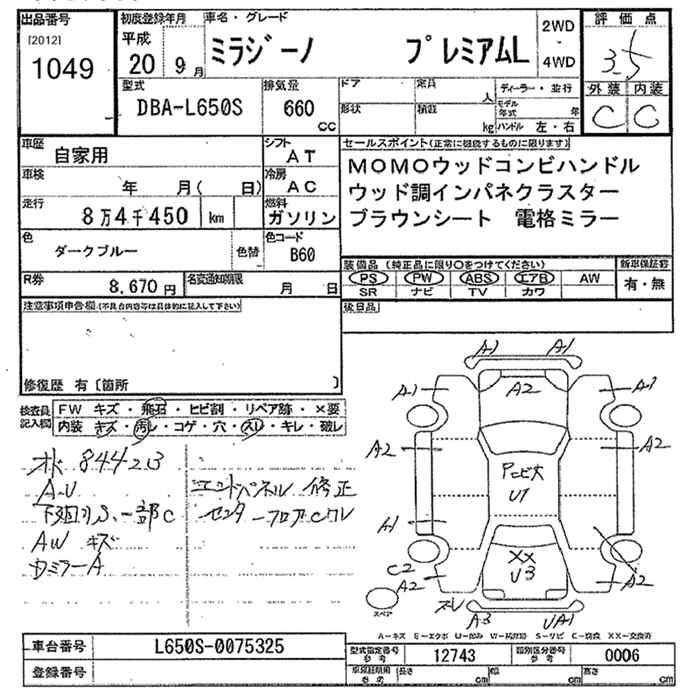 出品番号 初度登録年月 車名・グレード 2WD・4WD 評価点
[2012] 平成
1049 20年 9月 ミラジーノ プレミアムL 3.5
型式 排気量 ドア 定員 人 ディーラー・並行 外装 内装
DBA-L650S 660 cc 形状 積載 kg モデル年式 年 C C
ハンドル 左・右
車歴 自家用 シフト AT セールスポイント(正常に機能するものに限ります)
車検 年 月( 日) 冷房 AC MOMOウッドコンビハンドル
ウッド調インパネクラスター
走行 8万4千450 km 燃料 ガソリン ブラウンシート 電格ミラー
色 ダークブルー 色替 色コード B60
装備品(純正品に限り○をつけてください) 新車保証書
R券 8,670円 名変通知期限 月 日 PS PW ABS エアB AW 有・無
SR ナビ TV カワ
注意事項申告欄(不具合内容等は具体的に記入して下さい) 後日品
修復歴 有〔箇所 〕
検査員記入欄 FW キズ・飛石・ヒビ割・リペア跡・×要
内装 キズ・汚レ・コゲ・穴・スレ・キレ・破レ
844213
A・U エンドパネル 修正
下廻りS、一部C センターフロアCクレ
AW キズ
ミラーA
A1 A1
A1 A2 A1
A2 A2
U1
A1
XX
C2 U3
A2 A2
スレ
スペア A3 UA1
A-キズ E-エクボ U-凹み W-補修跡 S-サビ C-腐食 XX-交換済
車台番号 L650S-0075325 型式指定番号 参考 12743 類別区分番号 参考 0006
登録番号 長さ cm 幅 cm 高さ cm